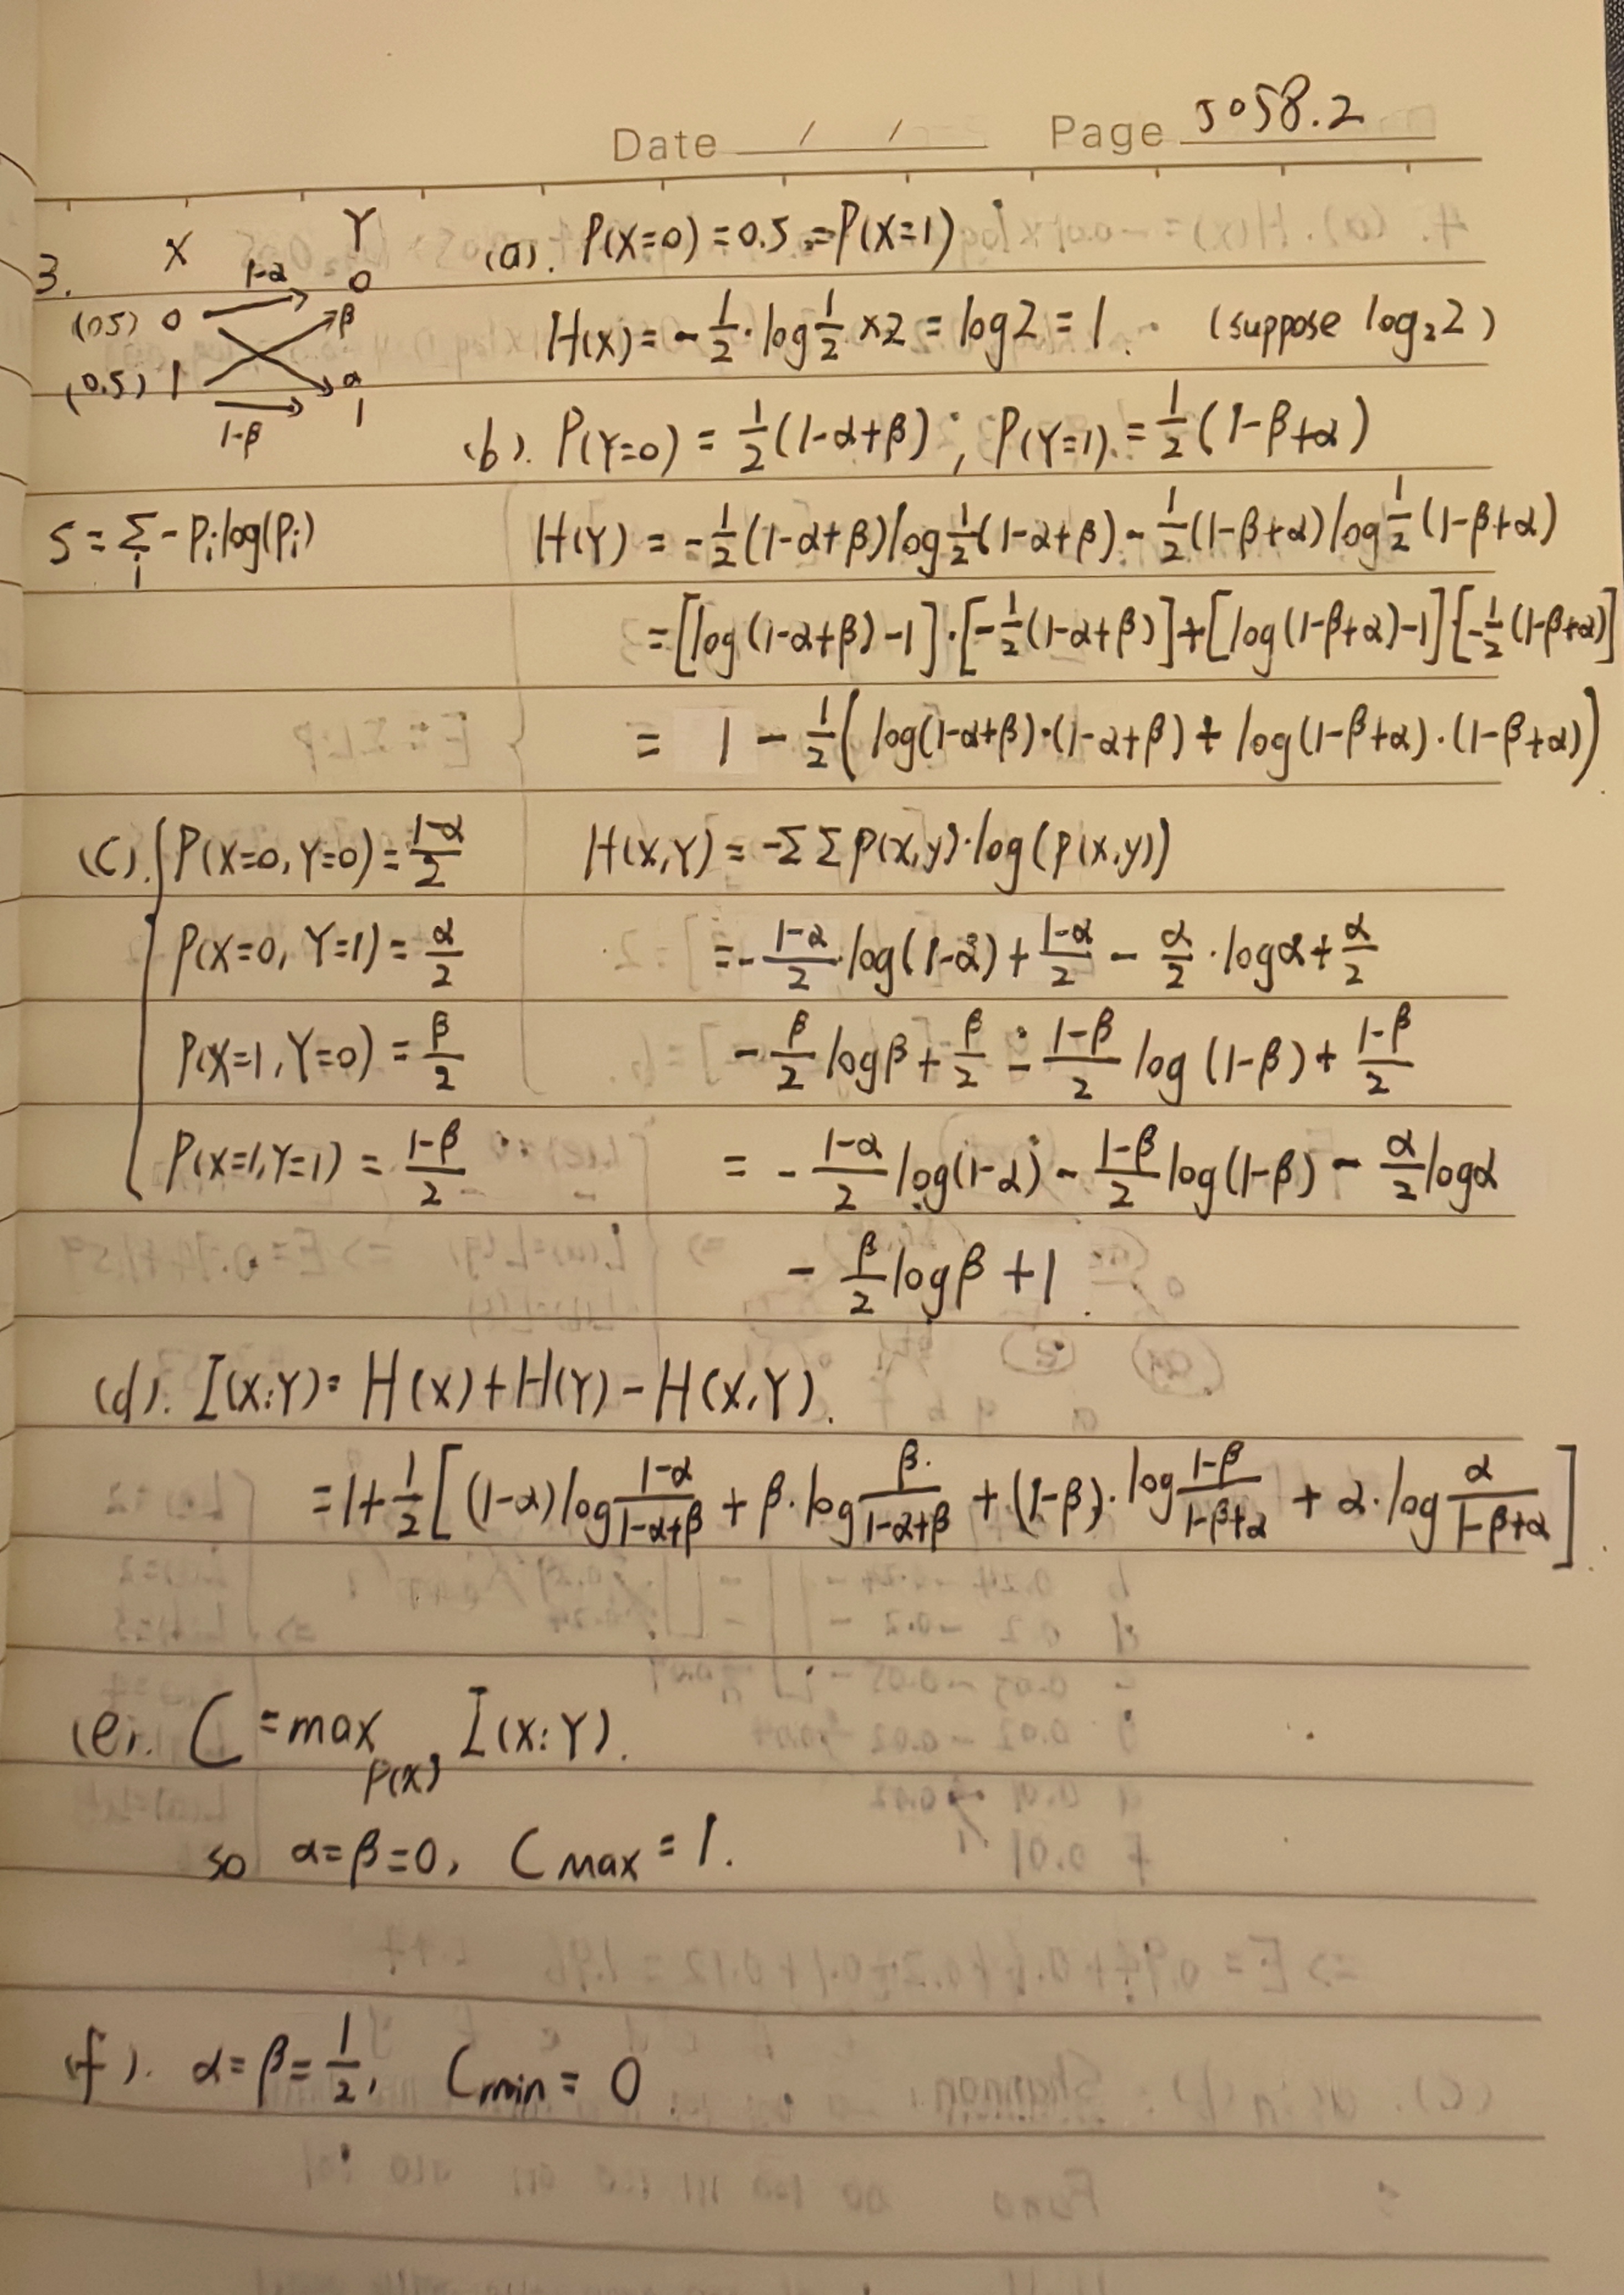 Date / / Page 5058.2
3. X Y
1-α 0
(05) 0 β
(0.5) 1 α
1-β 1
(a). P(X=0) = 0.5 = P(X=1)
H(X) = -1/2·log 1/2 ×2 = log2 = 1. (suppose log₂2)
(b). P(Y=0) = 1/2(1-α+β), P(Y=1) = 1/2(1-β+α)
S = Σ_i -Pi log(Pi)
H(Y) = -1/2(1-α+β)log 1/2(1-α+β) - 1/2(1-β+α)log 1/2(1-β+α)
= [log(1-α+β)-1]·[-1/2(1-α+β)] + [log(1-β+α)-1][-1/2(1-β+α)]
= 1 - 1/2(log(1-α+β)·(1-α+β) + log(1-β+α)·(1-β+α))
(c). { P(X=0,Y=0) = (1-α)/2
P(X=0, Y=1) = α/2
P(X=1,Y=0) = β/2
P(X=1,Y=1) = (1-β)/2
H(X,Y) = -ΣΣ p(x,y)·log(p(x,y))
= -(1-α)/2·log(1-α) + (1-α)/2 - α/2·logα + α/2
- β/2 logβ + β/2 - (1-β)/2 log(1-β) + (1-β)/2
= -(1-α)/2 log(1-α) - (1-β)/2 log(1-β) - α/2 logα
- β/2 logβ + 1.
(d). I(X:Y) = H(X)+H(Y)-H(X,Y).
= 1 + 1/2[(1-α)log (1-α)/(1-α+β) + β·log β/(1-α+β) + (1-β)·log (1-β)/(1-β+α) + α·log α/(1-β+α)].
(e). C = max_{P(X)} I(X:Y).
so α=β=0, Cmax = 1.
(f). α=β=1/2, Cmin = 0